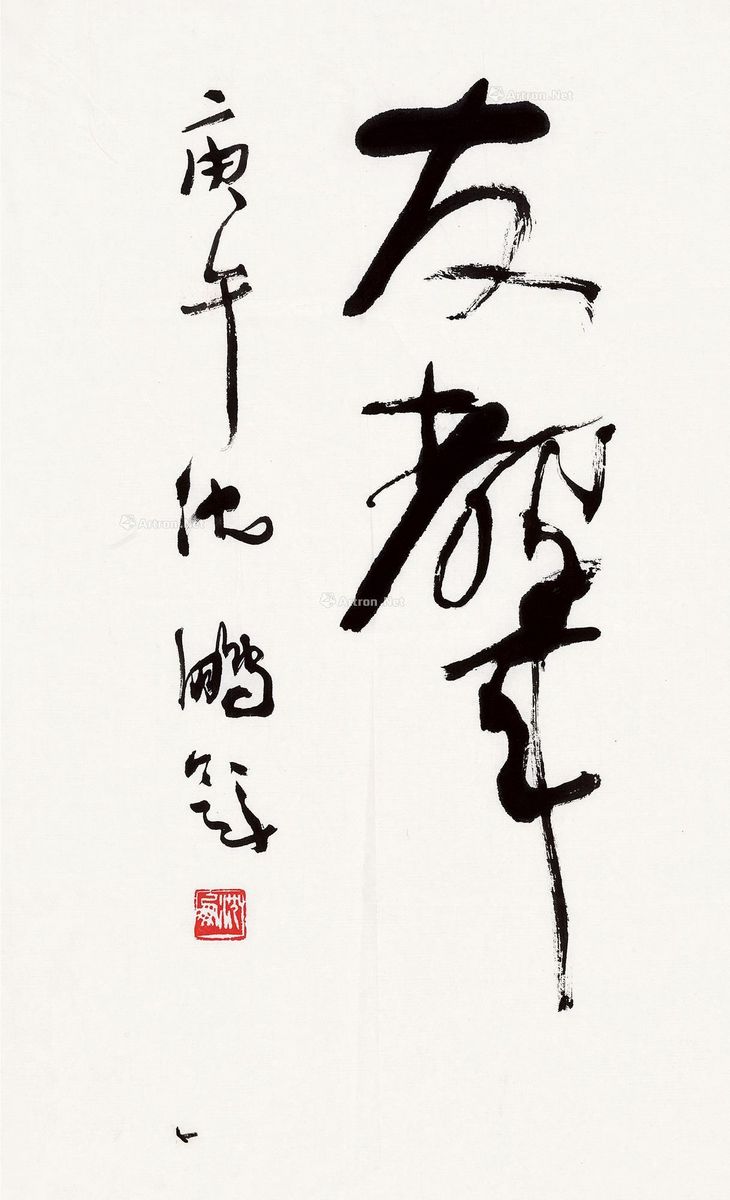 友声
庚午沈鹏笔
Artron.Net
Artron.Net
Artron.Net